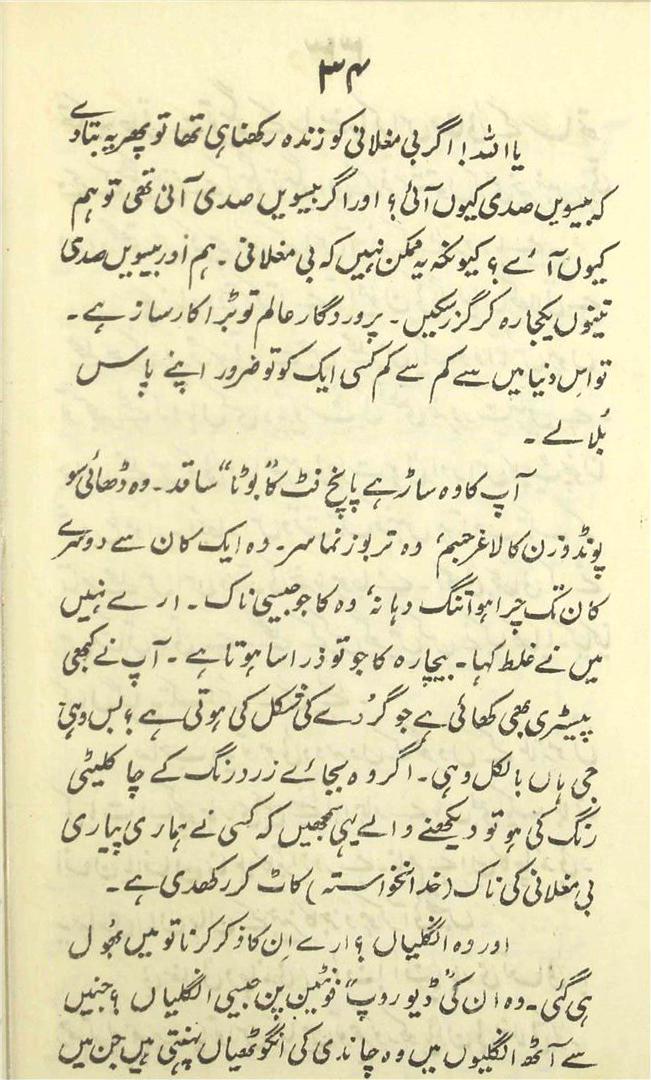 ۳۴
یا اللہ! اگر بی مغلانی کو زندہ رکھنا ہی تھا تو پھر یہ بتا دے
کہ بیسویں صدی کیوں آئی؟ اور اگر بیسویں صدی آنی تھی تو ہم
کیوں آئے؟ کیونکہ یہ ممکن نہیں کہ بی مغلانی ۔ ہم اور بیسویں صدی
تینوں یکجا رہ کر گزر سکیں ۔ پروردگار عالم تو بڑا کارساز ہے ۔
تو اس دنیا میں سے کم سے کم کسی ایک کو تو ضرور اپنے پاس
بُلا لے ۔
آپ کا وہ ساڑھے پانچ فٹ کا "بوٹا" سا قد ۔ وہ ڈھائی سو
پونڈ وزن کا لاغر جسم، وہ تربوز نما سر ۔ وہ ایک کان سے دوسرے
کان تک چرا ہوا تنگ دہانہ، وہ کاجو جیسی ناک ۔ ارے نہیں
میں نے غلط کہا ۔ بیچارہ کاجو تو ذرا سا ہوتا ہے ۔ آپ نے کبھی
پیسٹری بھی کھائی ہے جو گُردے کی شکل کی ہوتی ہے؟ بس وہی
جی ہاں بالکل وہی ۔ اگر وہ بجائے زرد رنگ کے چاکلیٹی
رنگ کی ہو تو دیکھنے والے یہی سمجھیں کہ کسی نے ہماری پیاری
بی مغلانی کی ناک (خدانخواستہ) کاٹ کر رکھدی ہے ۔
اور وہ انگلیاں؟ ارے اِن کا ذکر کرنا تو میں بھُول
ہی گئی ۔ وہ ان کی "ڈیوروپ" فونٹین پن جیسی انگلیاں؟ جنہیں
سے آٹھ انگلیوں میں وہ چاندی کی انگوٹھیاں پہنتی ہیں جن میں